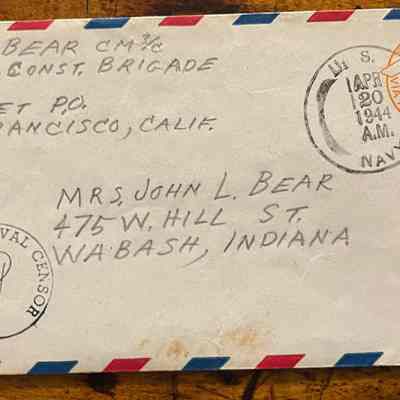 BEAR CM 3/C
CONST. BRIGADE
ET P.O.
RANCISCO, CALIF.
U. S.
APR
20
1944
A.M.
NAVY
VIA
MRS. JOHN L. BEAR
475 W. HILL ST.
WABASH, INDIANA
VAL CENSOR